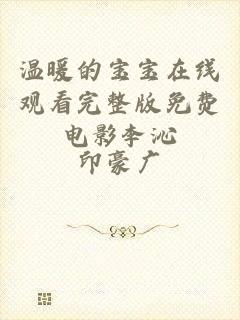 温暖的宝宝在线
观看完整版免费
电影李沁
印豪广